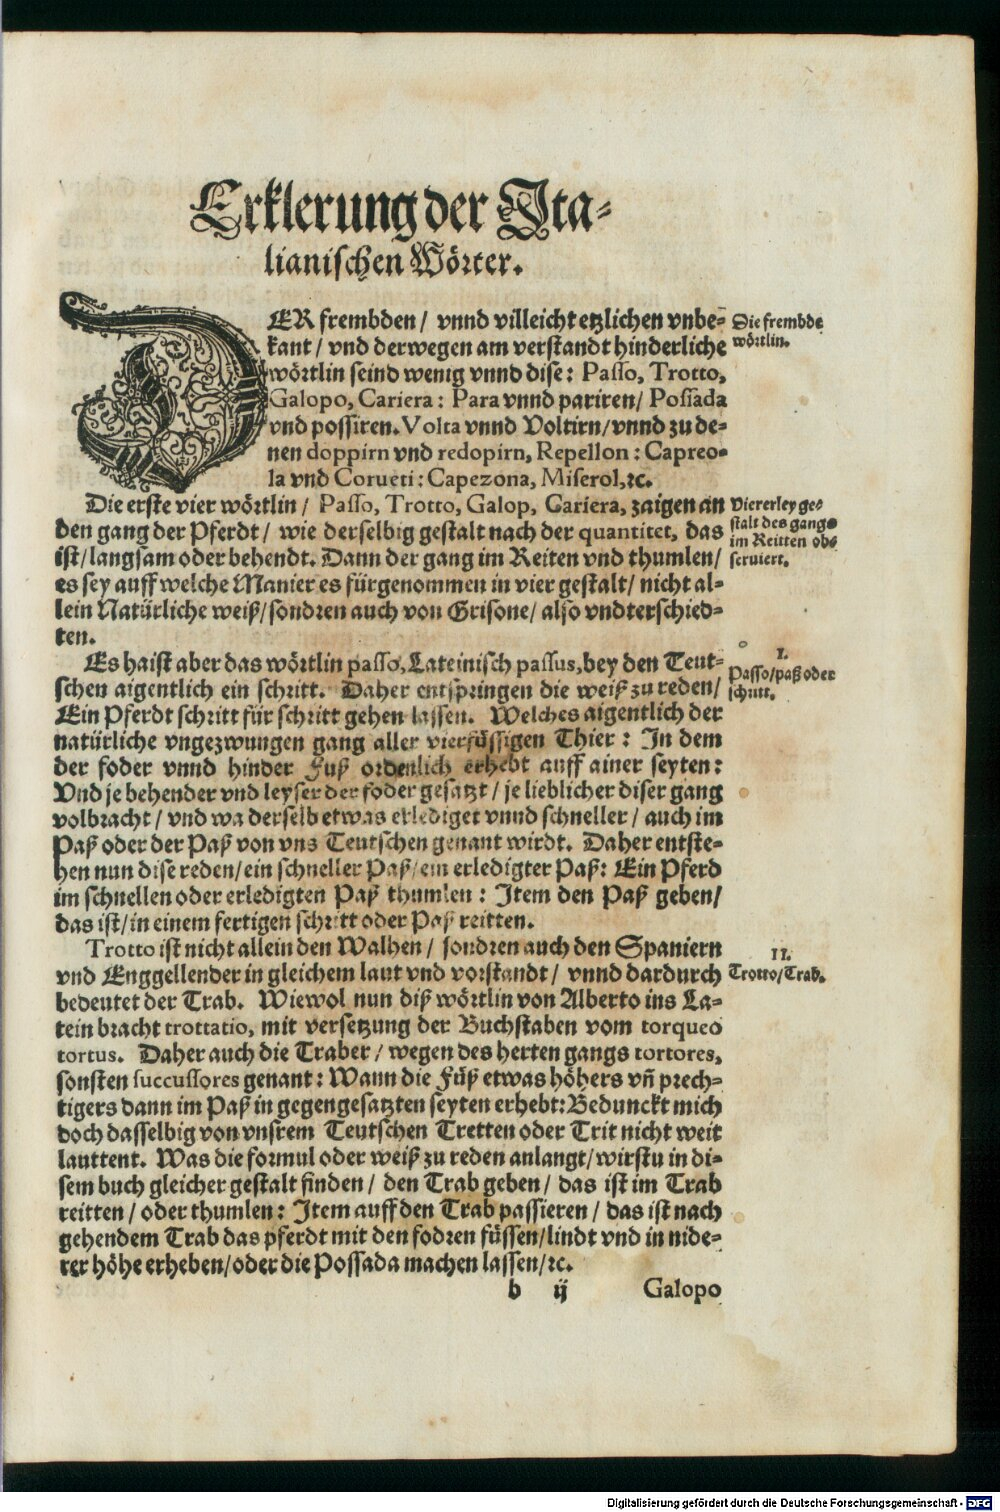 Erklerung der Ita-
lianischen Wörter.
DER frembden / vnnd villeicht etzlichen vnbe-
kant / vnd derwegen am verstandt hinderliche
wörtlin seind wenig vnnd dise: Passo, Trotto,
Galopo, Cariera: Para vnnd pariren / Possada
vnd possiren. Volta vnnd Voltirn / vnnd zu de-
nen doppirn vnd redopirn, Repellon: Capreo-
la vnd Corueti: Capezona, Miserol, ꝛc.
Die frembde
wörtlin.
Die erste vier wörtlin / Passo, Trotto, Galop, Cariera, zaigen an
den gang der Pferdt / wie derselbig gestalt nach der quantitet, das
ist / langsam oder behendt. Dann der gang im Reiten vnd thumlen /
es sey auff welche Manier es fürgenommen in vier gestalt / nicht al-
lein Natürliche weiß / sondren auch von Grisone / also vndterschied-
ten.
Viererley ge-
stalt des gangs
im Reitten ob-
seruiert.
Es haist aber das wörtlin passo, Lateinisch passus, bey den Teut-
schen aigentlich ein schritt. Daher entspringen die weiß zu reden /
Ein Pferdt schritt für schritt gehen lassen. Welches aigentlich der
natürliche vngezwungen gang aller vierfüssigen Thier: In dem
der foder vnnd hinder Fuß ordenlich erhebt auff ainer seyten:
Vnd je behender vnd leyser der foder gesatzt / je lieblicher diser gang
volbracht / vnd wa derselb etwas erlediget vnnd schneller / auch im
Paß oder der Paß von vns Teutschen genant wirdt. Daher entste-
hen nun dise reden / ein schneller Paß / ein erledigter Paß: Ein Pferd
im schnellen oder erledigten Paß thumlen: Item den Paß geben /
das ist / in einem fertigen schritt oder Paß reitten.
I.
Passo / paß oder
schritt.
Trotto ist nicht allein den Walhen / sondren auch den Spaniern
vnd Enggellender in gleichem laut vnd vorstandt / vnnd dardurch
bedeutet der Trab. Wiewol nun diß wörtlin von Alberto ins La-
tein bracht trottatio, mit versetzung der Buchstaben vom torqueo
tortus. Daher auch die Traber / wegen des herten gangs tortores,
sonsten succussores genant: Wann die Füß etwas höhers vñ prech-
tigers dann im Paß in gegengesatzten seyten erhebt: Bedunckt mich
doch dasselbig von vnsrem Teutschen Tretten oder Trit nicht weit
lauttent. Was die formul oder weiß zu reden anlangt / wirstu in di-
sem buch gleicher gestalt finden / den Trab geben / das ist im Trab
reitten / oder thumlen: Item auff den Trab passieren / das ist nach
gehendem Trab das pferdt mit den fodren füssen / lindt vnd in nide-
rer höhe erheben / oder die Possada machen lassen / ꝛc.
II.
Trotto / Trab.
b ij Galopo
Digitalisierung gefördert durch die Deutsche Forschungsgemeinschaft - DFG